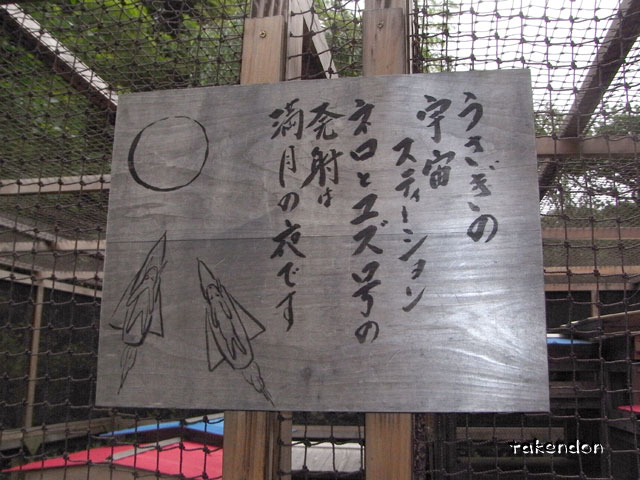 うさぎの
宇宙
スティーション
ネロとユズ号の
発射は
満月の夜です
rakendon